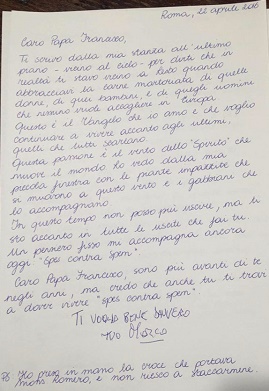 Roma, 22 aprile 2016
Caro Papa Francesco,
Ti scrivo dalla mia stanza all'ultimo
piano - vicino al cielo - per dirti che in
realtà ti stavo vicino a Lesbo quando
abbracciavi la carne martoriata di quelle
donne, di quei bambini, e di quegli uomini
che nessuno vuole accogliere in Europa
Questo è il Vangelo che io amo e che voglio
continuare a vivere accanto agli ultimi,
quelli che tutti scartano.
Questa passione è il vento dello "Spirito" che
muove il mondo. Lo vedo dalla mia
piccola finestra con le piante impazzite che
si muovono a questo vento e i gabbiani che
lo accompagnano.
In questo tempo non posso più uscire, ma ti
sto accanto in tutte le uscite che fai tu.
Un pensiero fisso mi accompagna ancora
oggi "Spes contra spem".
Caro Papa Francesco, sono più avanti di te
negli anni, ma credo che anche tu ti trovi
a dover vivere "spes contra spem".
TI VOGLIO BENE DAVVERO
TUO MARCO
PS Ho preso in mano la croce che portava
mons Romero, e non riesco a staccarmene.